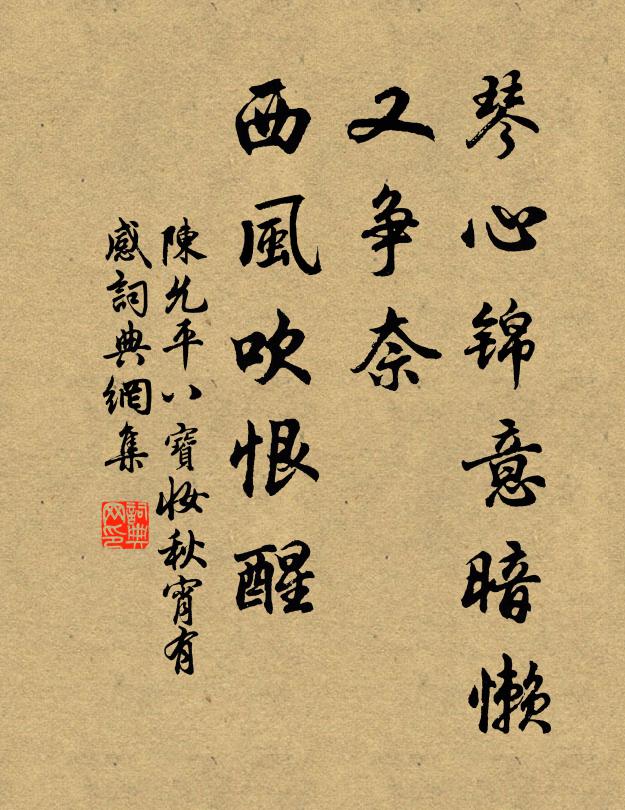 琴心锦意暗懒
又争奈
西風吹恨醒
陳允平八寶妆秋宵有
感詞典網集
詞典网印